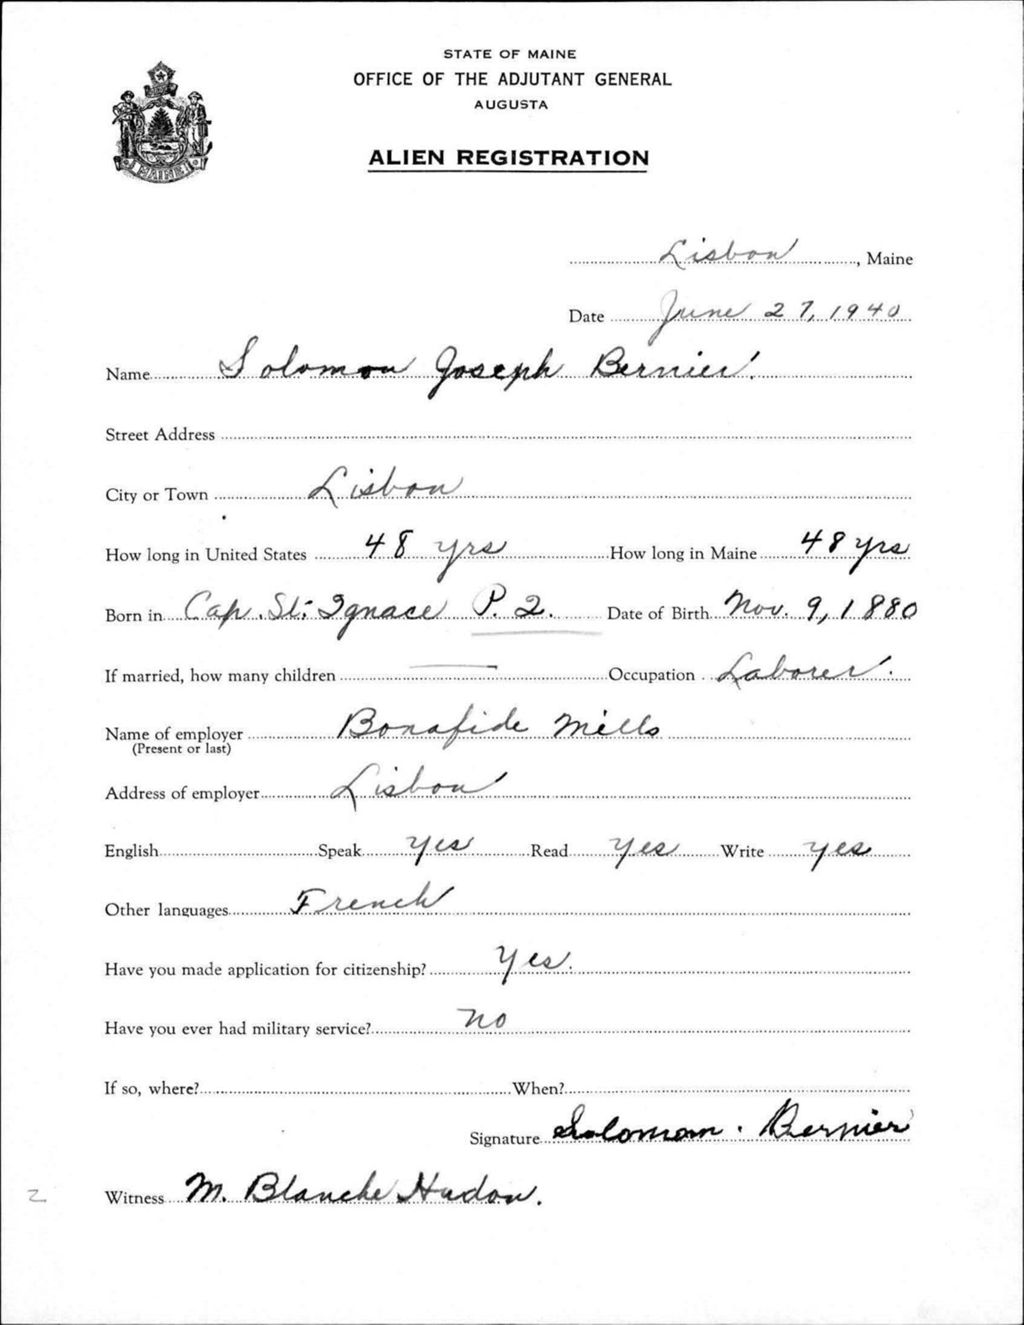 STATE OF MAINE
OFFICE OF THE ADJUTANT GENERAL
AUGUSTA
ALIEN REGISTRATION
MAINE
Lisbon, Maine
Date June 27, 1940
Name Solomon Joseph Bernier
Street Address
City or Town Lisbon
How long in United States 48 yrs How long in Maine 48 yrs
Born in Cap. St. Ignace P. Q. Date of Birth Nov. 9, 1880
If married, how many children — Occupation Laborer
Name of employer Bonafide Mills
(Present or last)
Address of employer Lisbon
English Speak Yes Read Yes Write yes
Other languages French
Have you made application for citizenship? Yes.
Have you ever had military service? No
If so, where? When?
Signature Solomon. Bernier
Witness M. Blanche Hudon.
2